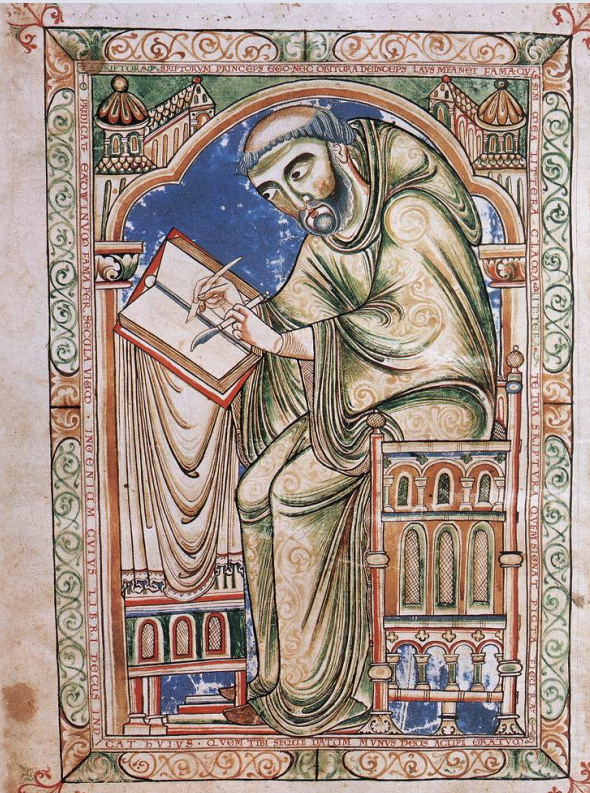 SRIPTORVM PRINCEPS EGO·NEC OBITVRA DEINCEPS LAVS MEA NEC FAMA·QVI
SIM MEA LITTERA CLAMA·LITTER· TE TVA SRIPTVRA QVEM SIGNAT PICTA FIGVRA
PREDICAT EADWINVM FAMA PER SECVLA VIVVM · INGENIVM CVIVS LIBRI DECVS INDI
CAT HVIVS · QVEM TIBI SEQVE DATVM MVNVS DEVS ACCIPE GRATVM